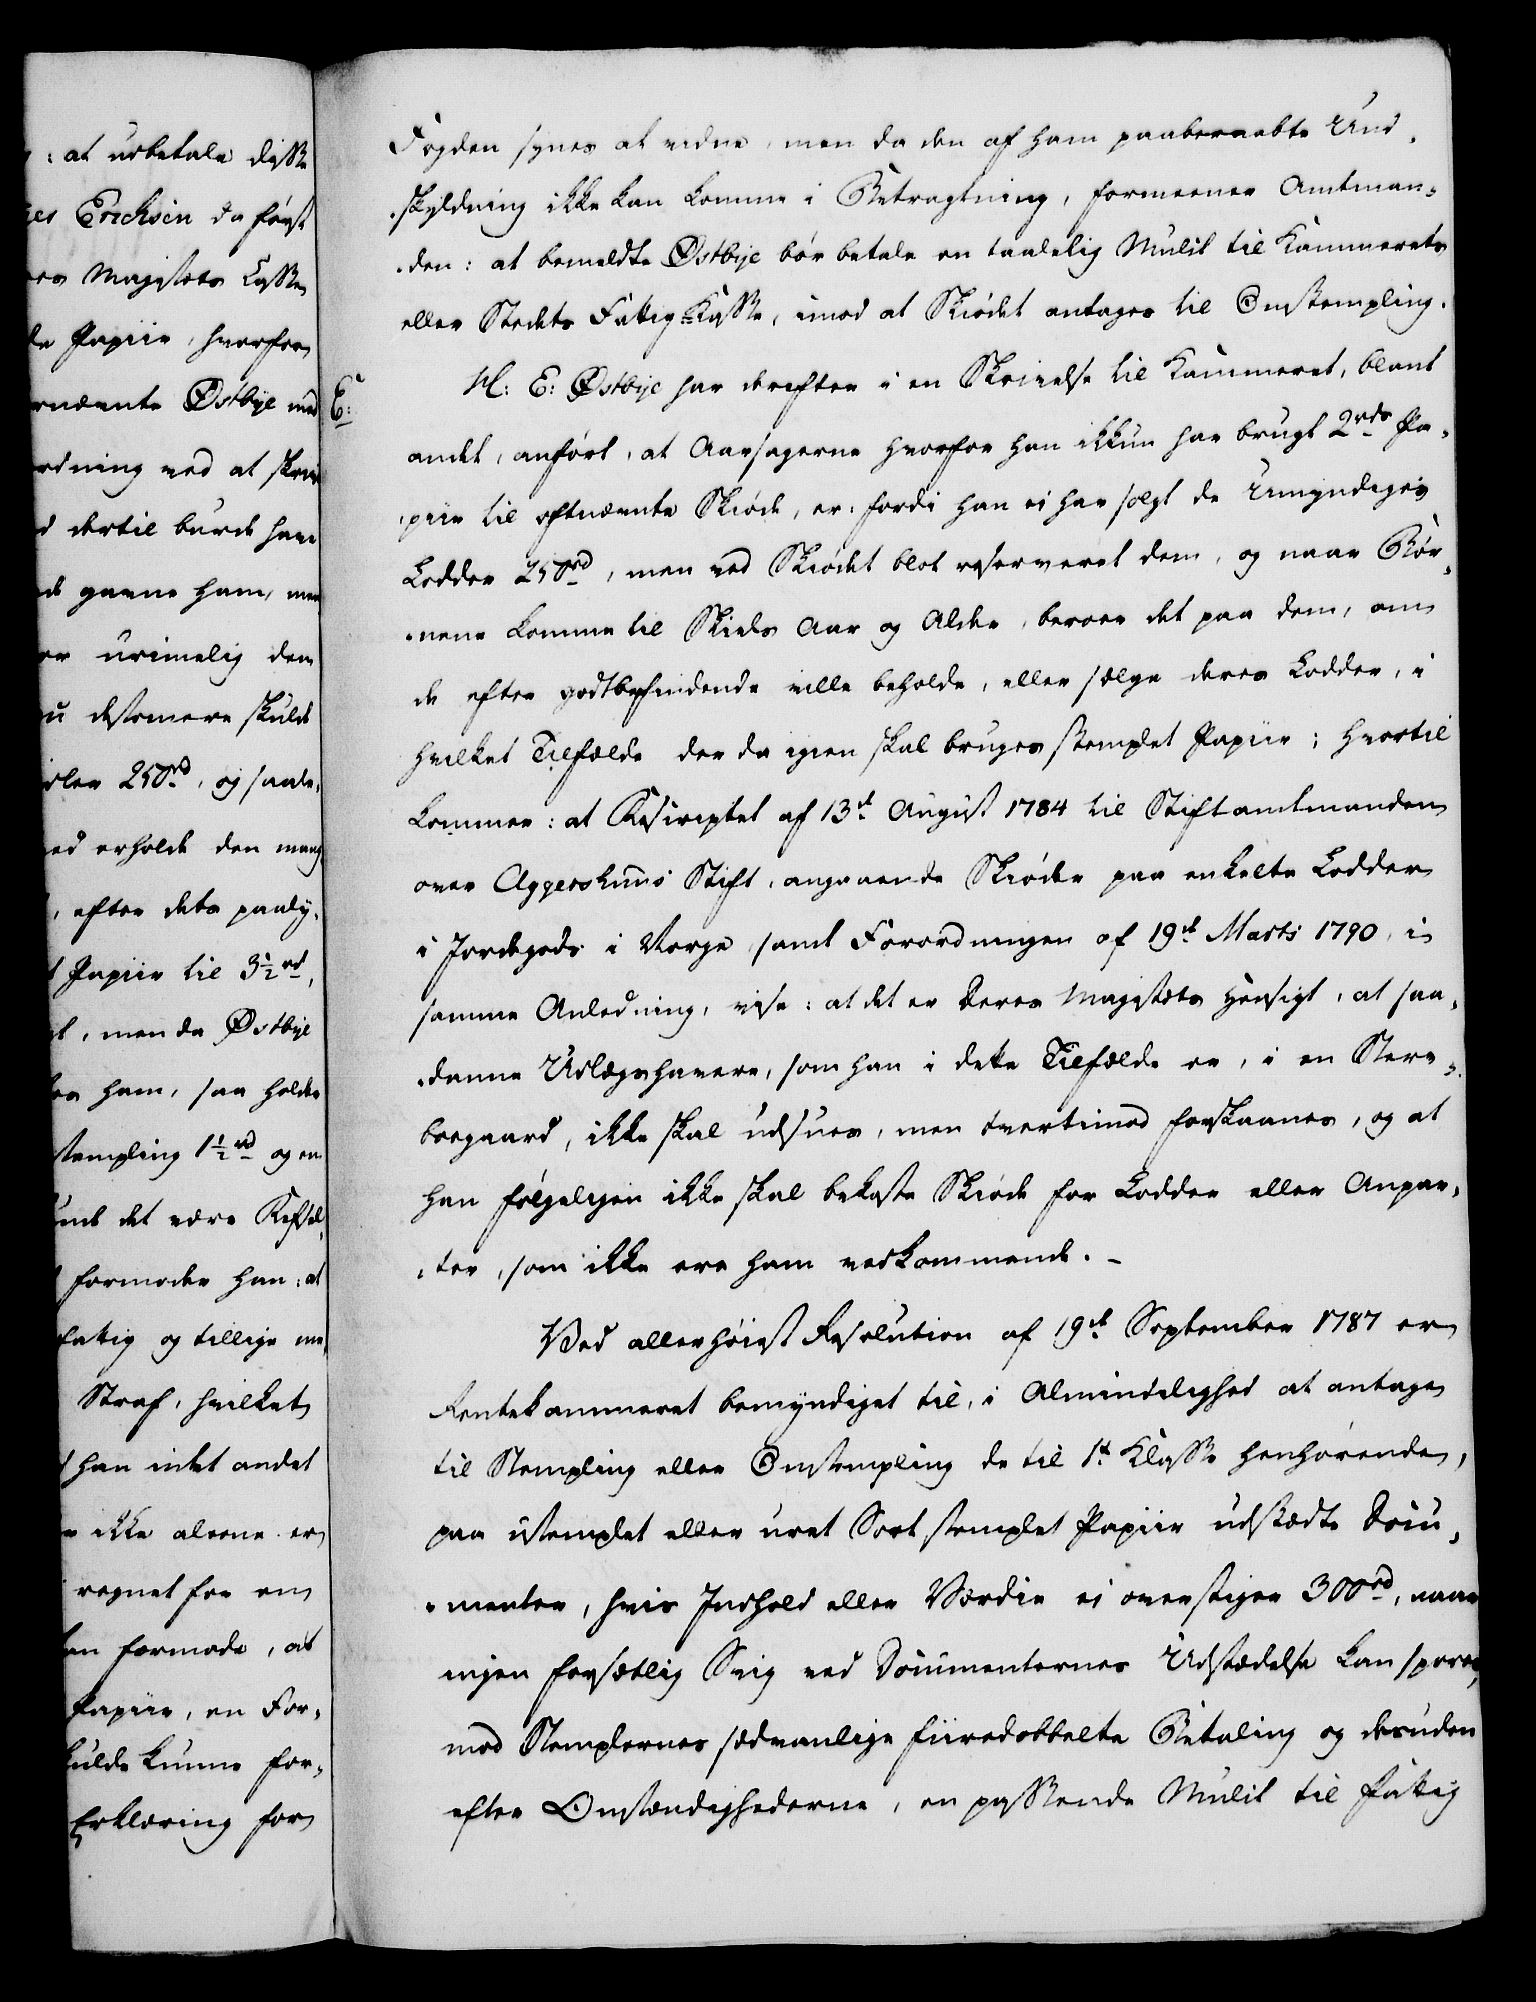 : at udbetale disse
Erichsen da først
Majestæts Casse
Papiir, hvorfor
Østbye med
ordning ved at skrive
dertil burde have
gavne ham, men
urimelig den
destomere skulde
250rd, og saale,
erholde den mang
, efter dets paaly,
Papiir til 3½rd,
, men da Østbye
ham, saa holder
stempling 1½rd og en
det være
formoder han: at
fattig og tillige
Straf, hvilket
han intet andet
ikke aleene er
regnet for en
formode, at
Papiir, en For,
skulde kunne for,
Erklæring for
Fogden synes at vidne, men da den af ham paaberaabte Und,
,skyldning ikke kan komme i Betragtning, formeener Amtman,
,den: at bemeldte Østbye bør betale en taalelig Mulct til Kammerets
eller Stedets Fattig-Kasse, imod at Skiødet antages til Omstempling.
E: H: E: Østbye har derefter i en Skrivelse til Kammeret, blant
andet, anført, at Aarsagerne hvorfor han ikkun har brugt 2rds Pa,
,piir til oftnævnte Skiøde, er: fordi han ei har solgt de Umyndiges
Lodder 250rd, men ved Skiødet blot reserveret dem, og naar Bør,
,nene komme til Skiels Aar og Alder, beroer det paa dem, om
de efter godtbefindende ville beholde, eller sælge deres Lodder, i
hvilket Tilfælde der da igien skal bruges stemplet Papiir; hvortil
kommer: at Rescriptet af 13de August 1784 til Stiftamtmanden
over Aggershuus Stift, angaaende Skiøder paa enkelte Lodder
i Jordegods i Norge, samt Forordningen af 19de Marts 1790, i
samme Anledning, vise: at det er Deres Majestæts Hensigt, at saa,
,danne Udlægshavere, som han i dette Tilfælde er, i en Sterv,
boegaard, ikke skal udsues, men tvertimod forskaanes, og at
han følgeligen ikke skal bekoste Skiøde for Lodder eller Anpar,
,ter, som ikke ere ham vedkommende. -
Ved allerhøiest Resolution af 19de September 1787 er
Rentekammeret bemyndiget til, i Almindelighed at antage
til Stempling eller Omstempling de til 1te Klasse henhørende,
paa ustemplet eller uret Sort stemplet Papiir udstædte Docu,
,menter, hvis Indhold eller Værdie ei overstiger 300rd, naar
ingen forsætlig Svig ved Documenternes Udstædelse kan spores,
mod Stemplernes sædvanlige fiiredobbelte Betaling og desuden
efter Omstændighederne, en passende Mulct til Fattig